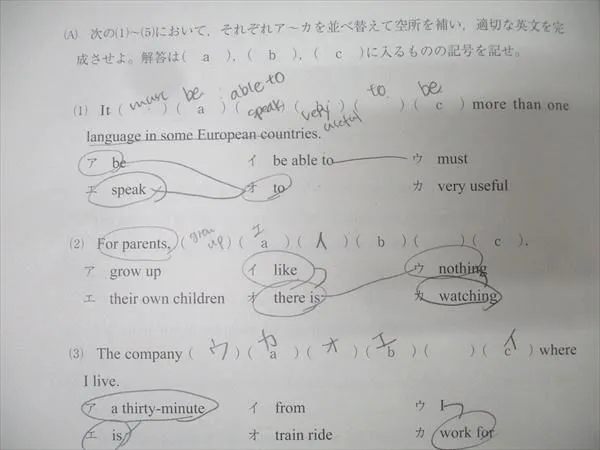 (A) 次の(1)~(5)において，それぞれア~カを並べ替えて空所を補い，適切な英文を完
成させよ。解答は( a )，( b )，( c )に入るものの記号を記せ。
must be able to to be
(1) It ( )( a )( speak )( very useful )( )( c ) more than one
language in some European countries.
ア be イ be able to ウ must
エ speak オ to カ very useful
(2) For parents, ( grow up )( a エ )( 人 )( b )( )( c ).
ア grow up イ like ウ nothing
エ their own children オ there is カ watching
(3) The company ( ウ )( a カ )( オ )( b エ )( )( c イ ) where
I live.
ア a thirty-minute イ from ウ I
エ is オ train ride カ work for